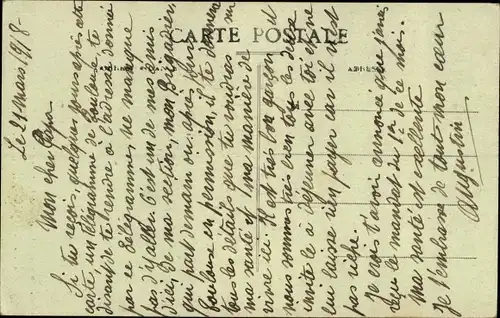 CARTE POSTALE
Le 21 mars 1918-
Mon cher Papa
Si tu reçois, quelques jours après cette
carte, un télégramme de Toulouse te
disant de te rendre à l'adresse donnée
par ce télégramme, ne manque
pas d'y aller. C'est un de mes amis
d'ici, de ma section, mon Brigadier,
qui part demain ou après pour
Toulouse en permission, il te donnera
tous les détails que tu voudras sur
ma santé et ma manière de
vivre ici. Il est très bon garçon et
nous sommes très bien tous les deux
invite le à déjeuner avec toi et ne
lui laisse rien payer car il n'est
pas riche.
Je crois t'avoir annoncé que j'avais
reçu le mandat du 1er de ce mois.
Ma santé est excellente
Je t'embrasse de tout mon cœur
Augustin